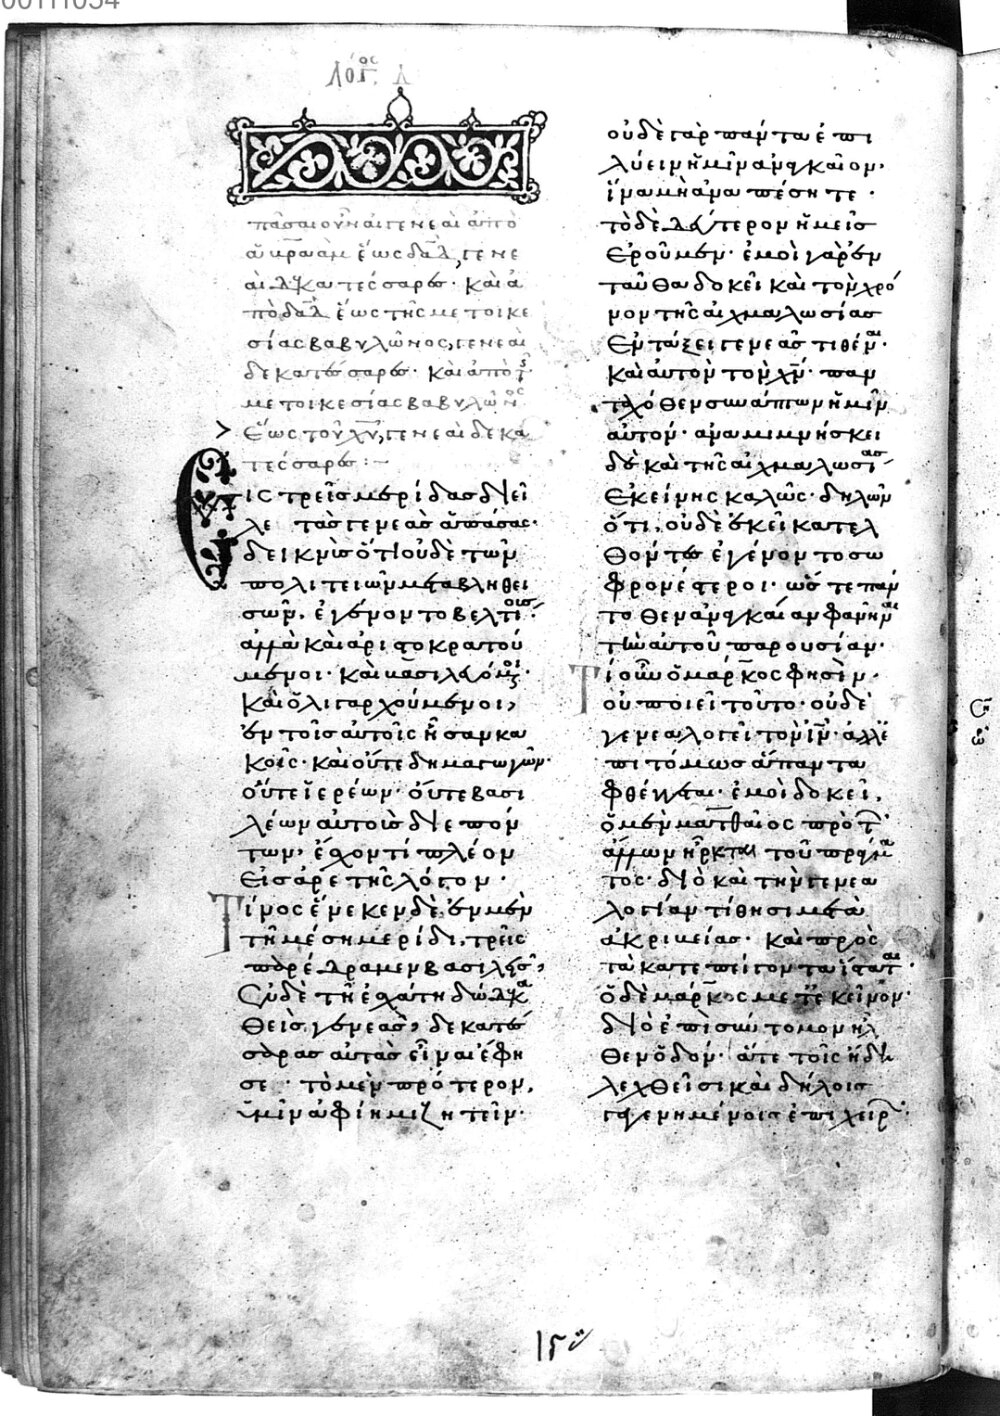 00111054
Λόγος Δ
πᾶσαι οὖν αἱ γενεαὶ ἀπὸ
ἀβρααμ ἕως δαδ, γενε
αὶ δεκατέσσαρες· καὶ ἀ
πὸ δαδ ἕως τῆς μετοικε
σίας βαβυλῶνος, γενεαὶ
δεκατέσσαρες· καὶ ἀπὸ τῆς
μετοικεσίας βαβυλῶνος
ἕως τοῦ χυ, γενεαὶ δεκα
τέσσαρες:–
Εἰς τρεῖς μερίδας διεῖ
λε τὰς γενεὰς ἁπάσας·
δεικνὺς ὅτι οὐδὲ τῶν
πολιτειῶν μεταβληθει
σῶν, ἐγένοντο βελτίους·
ἀλλὰ καὶ ἀριστοκρατού
μενοι· καὶ βασιλευόμενοι·
καὶ ὀλιγαρχούμενοι,
ἐν τοῖς αὐτοῖς ἦσαν κα
κοῖς· καὶ οὔτε δημαγωγῶν·
οὔτε ἱερέων· οὔτε βασι
λέων αὐτοὺς διεπόν
των, ἔσχον τί πλέον
εἰς ἀρετῆς λόγον·
Τίνος ἕνεκεν δὲ ἐν μὲν
τῇ μέση μερίδι, τρεῖς
παρέδραμεν βασιλεῖς,
ἐν δὲ τῇ ἐσχάτη δώδεκα
θεὶς γενεὰς, δεκατέσ
σαρας αὐτὰς εἶναι ἔφη
σε· τὸ μὲν πρότερον,
ὑμῖν ἀφίημι ζητεῖν·
οὐδὲ γὰρ πάντα ἐπι
λύειν ἡμῖν ἀναγκαῖον·
ἵνα μὴ ἀναπέσητε·
τὸ δὲ δεύτερον ἡμεῖς
ἐροῦμεν· ἐμοὶ γὰρ ἐν
ταῦθα δοκεῖ καὶ τὸν χρό
νον τῆς αἰχμαλωσίας
ἐν τάξει γενεᾶς τιθέναι·
καὶ αὐτὸν τὸν χν· παν
ταχόθεν συνάπτων ἡμῖν
αὐτόν· ἀναμιμνήσκει
δὲ καὶ τῆς αἰχμαλωσίας
ἐκείνης καλῶς· δηλῶν
ὅτι, οὐδὲ ἐκεῖ κατελ
θόντες ἐγένοντο σω
φρονέστεροι· ὥστε παν
τόθεν ἀναγκαίαν φανῆναι
τὴν αὐτοῦ παρουσίαν·
Τί οὖν ὁ μάρκος φησὶν·
οὐ ποιεῖ τοῦτο· οὐδὲ
γενεαλογεῖ τὸν ἰν· ἀλλ' ἐ
πιτόμως ἅπαντα
φθέγγεται· ἐμοὶ δοκεῖ,
ὁ μὲν ματθαῖος πρὸ τῶν
ἄλλων ἦρκται τοῦ πράγμα
τος· διὸ καὶ τὴν γενεα
λογίαν τίθησι μετὰ
ἀκριβείας· καὶ πρὸς
τὰ κατεπείγοντα ἵσταται·
ὁ δὲ μάρκος μετ' ἐκεῖνον·
διὸ ἐπὶ σύντομον ἦλ
θεν ὁδόν· ἅτε τοῖς ἤδη
λεχθεῖσι καὶ δήλοις
γεγενημένοις ἐπιχειρῶν·